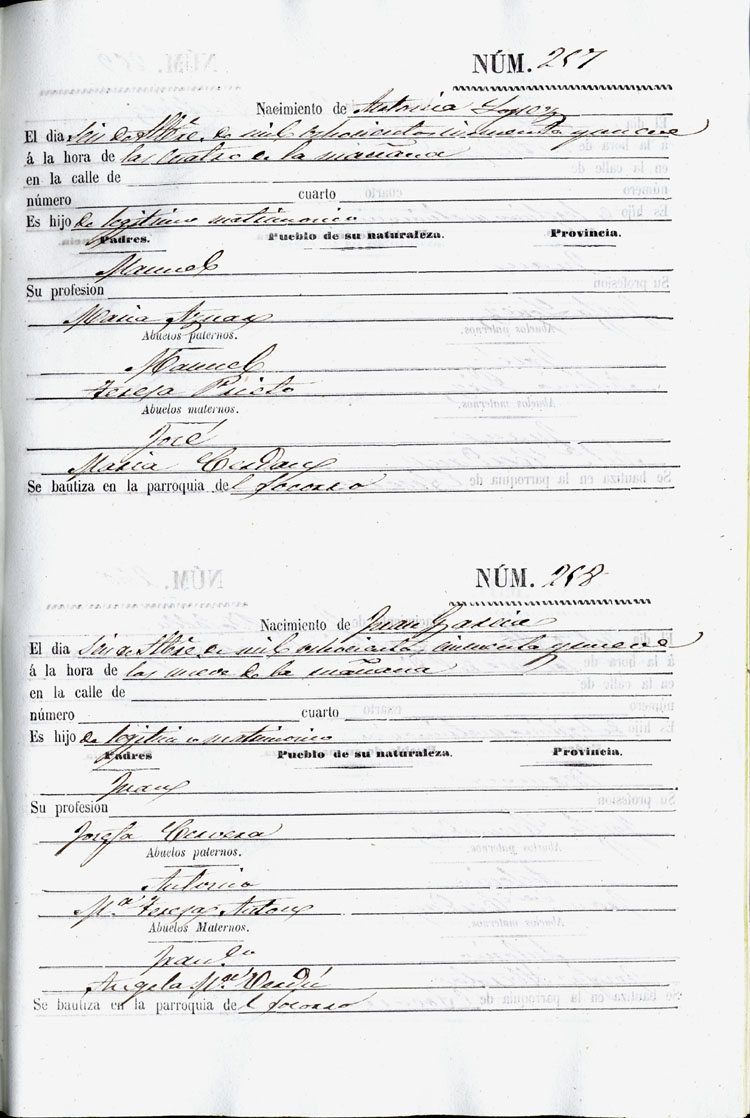 NÚM. 297
Nacimiento de Antonia Lopez
El dia Seis de Stbre. de mil ochocientos cincuenta y nueve
á la hora de las cuatro de la mañana
en la calle de
número cuarto
Es hijo de legitimo matrimonio
Padres. Pueblo de su naturaleza. Provincia.
Manuel
Su profesion
Maria Aznar
Abuelos paternos.
Manuel
Teresa Prieto
Abuelos maternos.
José
Maria Cerdan
Se bautiza en la parroquia del Socorro
NÚM. 298
Nacimiento de Juan Garcia
El dia Seis de Stbre. de mil ochocientos cincuenta y nueve
á la hora de las nueve de la mañana
en la calle de
número cuarto
Es hijo de legitimo matrimonio
Padres Pueblo de su naturaleza. Provincia.
Juan
Su profesion
Josefa Cervera
Abuelos paternos.
Antonio
Mª Teresa Anton
Abuelos Maternos.
Angela Mª Verdú
Se bautiza en la parroquia del Socorro